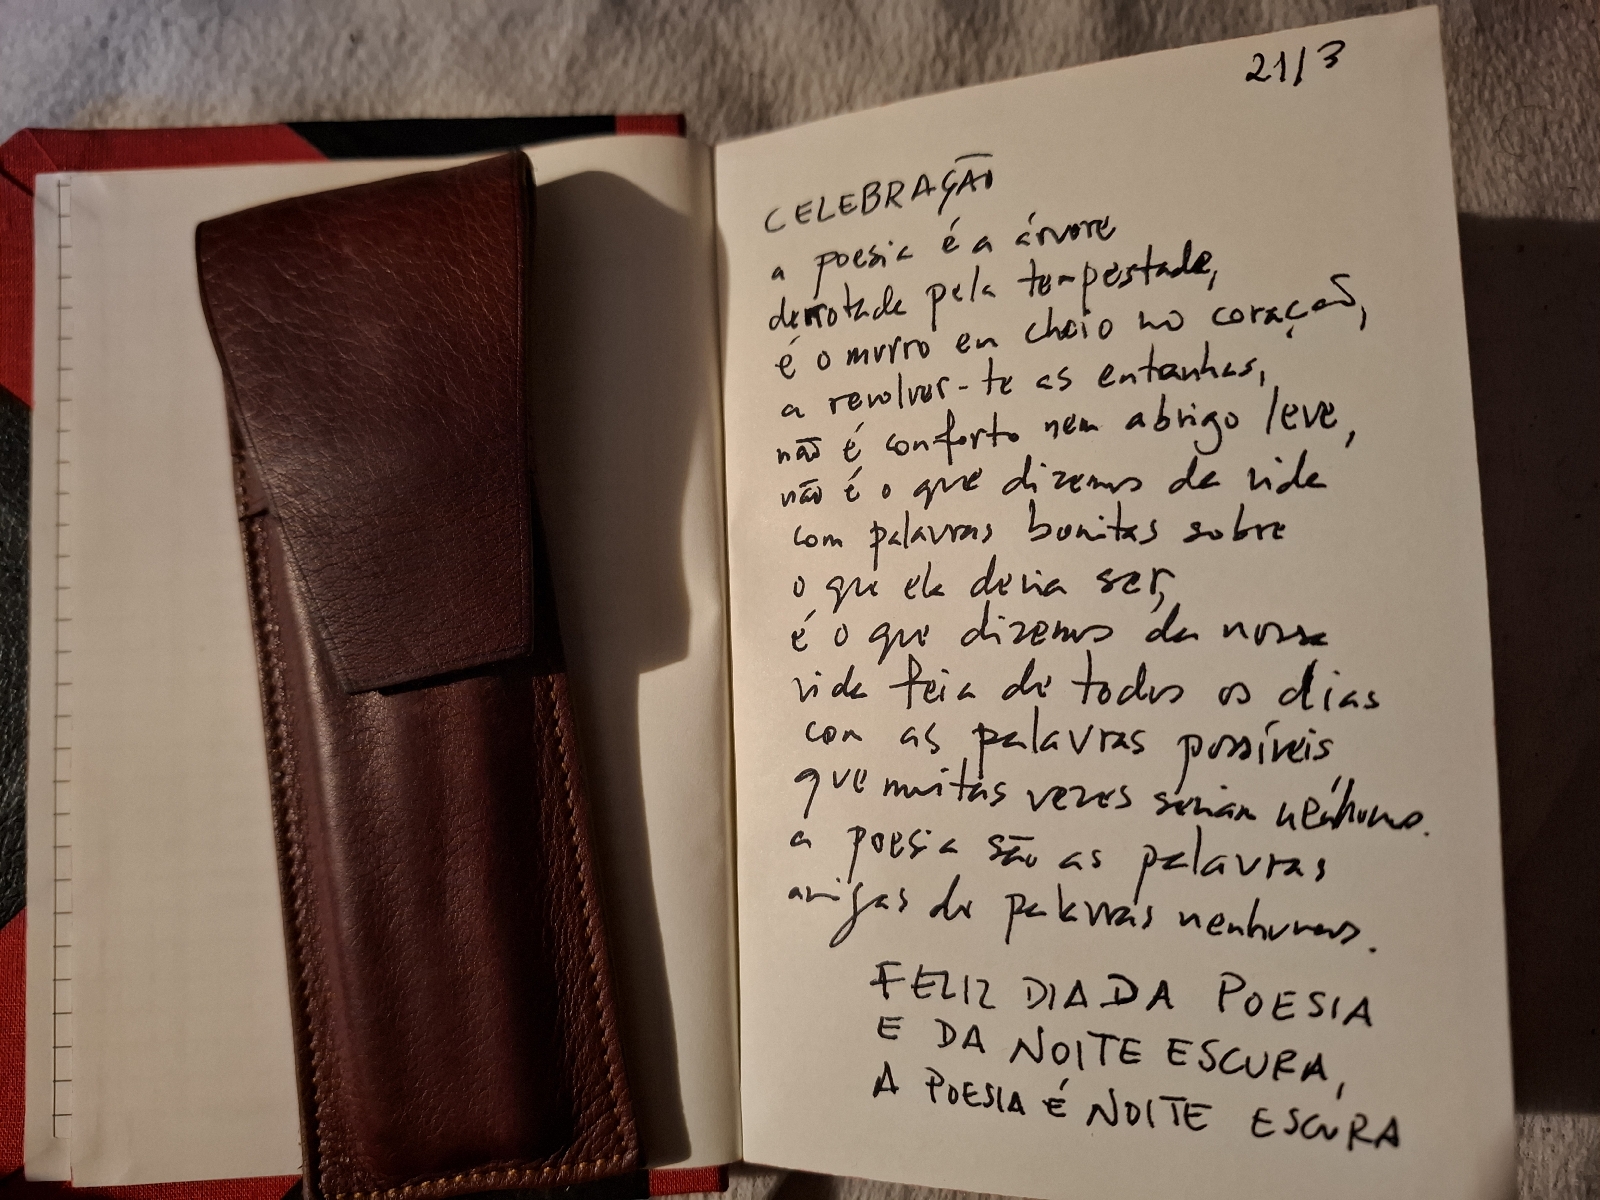 21/3
CELEBRAÇÃO
a poesia é a árvore
derrotada pela tempestade,
é o murro em cheio no coração,
a revolver-te as entranhas,
não é conforto nem abrigo leve,
não é o que dizemos da vida
com palavras bonitas sobre
o que ela devia ser,
é o que dizemos da nossa
vida feia de todos os dias
com as palavras possíveis
que muitas vezes seriam nenhumas.
a poesia são as palavras
amigas de palavras nenhumas.
FELIZ DIA DA POESIA
E DA NOITE ESCURA,
A POESIA É NOITE ESCURA